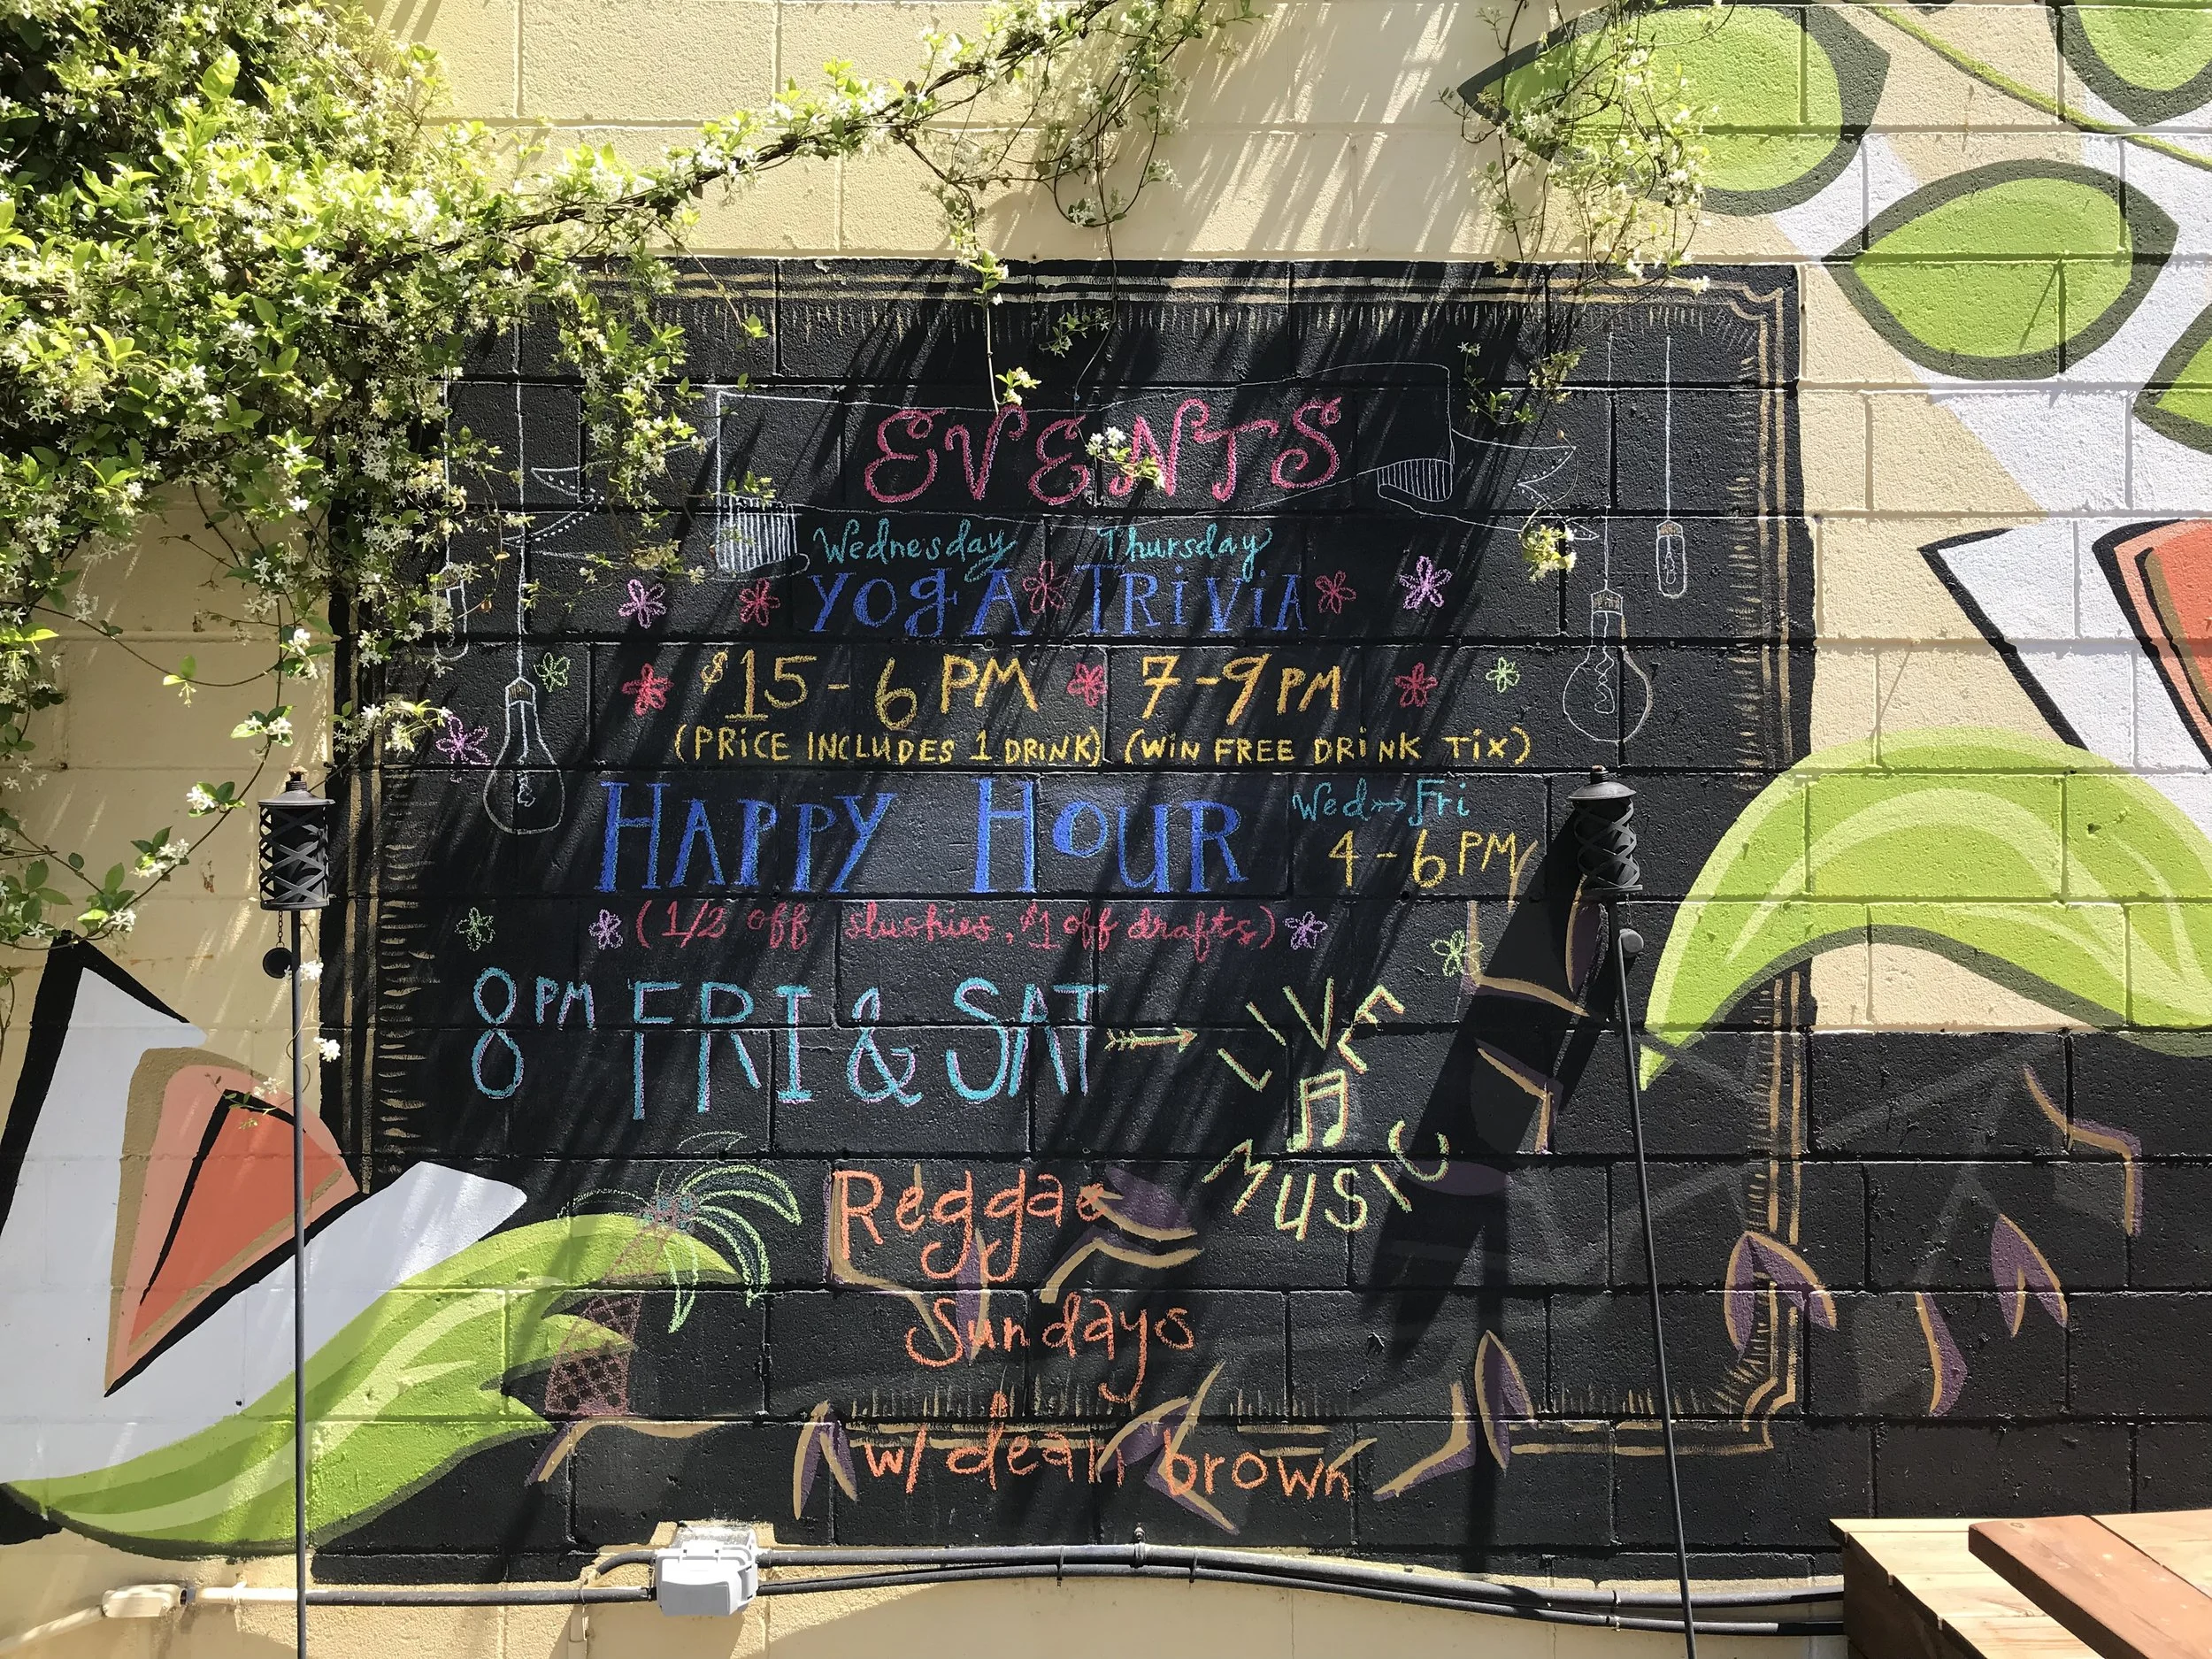 EVENTS
Wednesday Thursday
YOGA TRIVIA
$15 - 6 PM 7-9 PM
(PRICE INCLUDES 1 DRINK) (WIN FREE DRINK TIX)
HAPPY HOUR Wed → Fri
4-6 PM
(1/2 off slushies, $1 off drafts)
8 PM FRI & SAT → LIVE
MUSIC
Reggae
Sundays
w/ dean brown